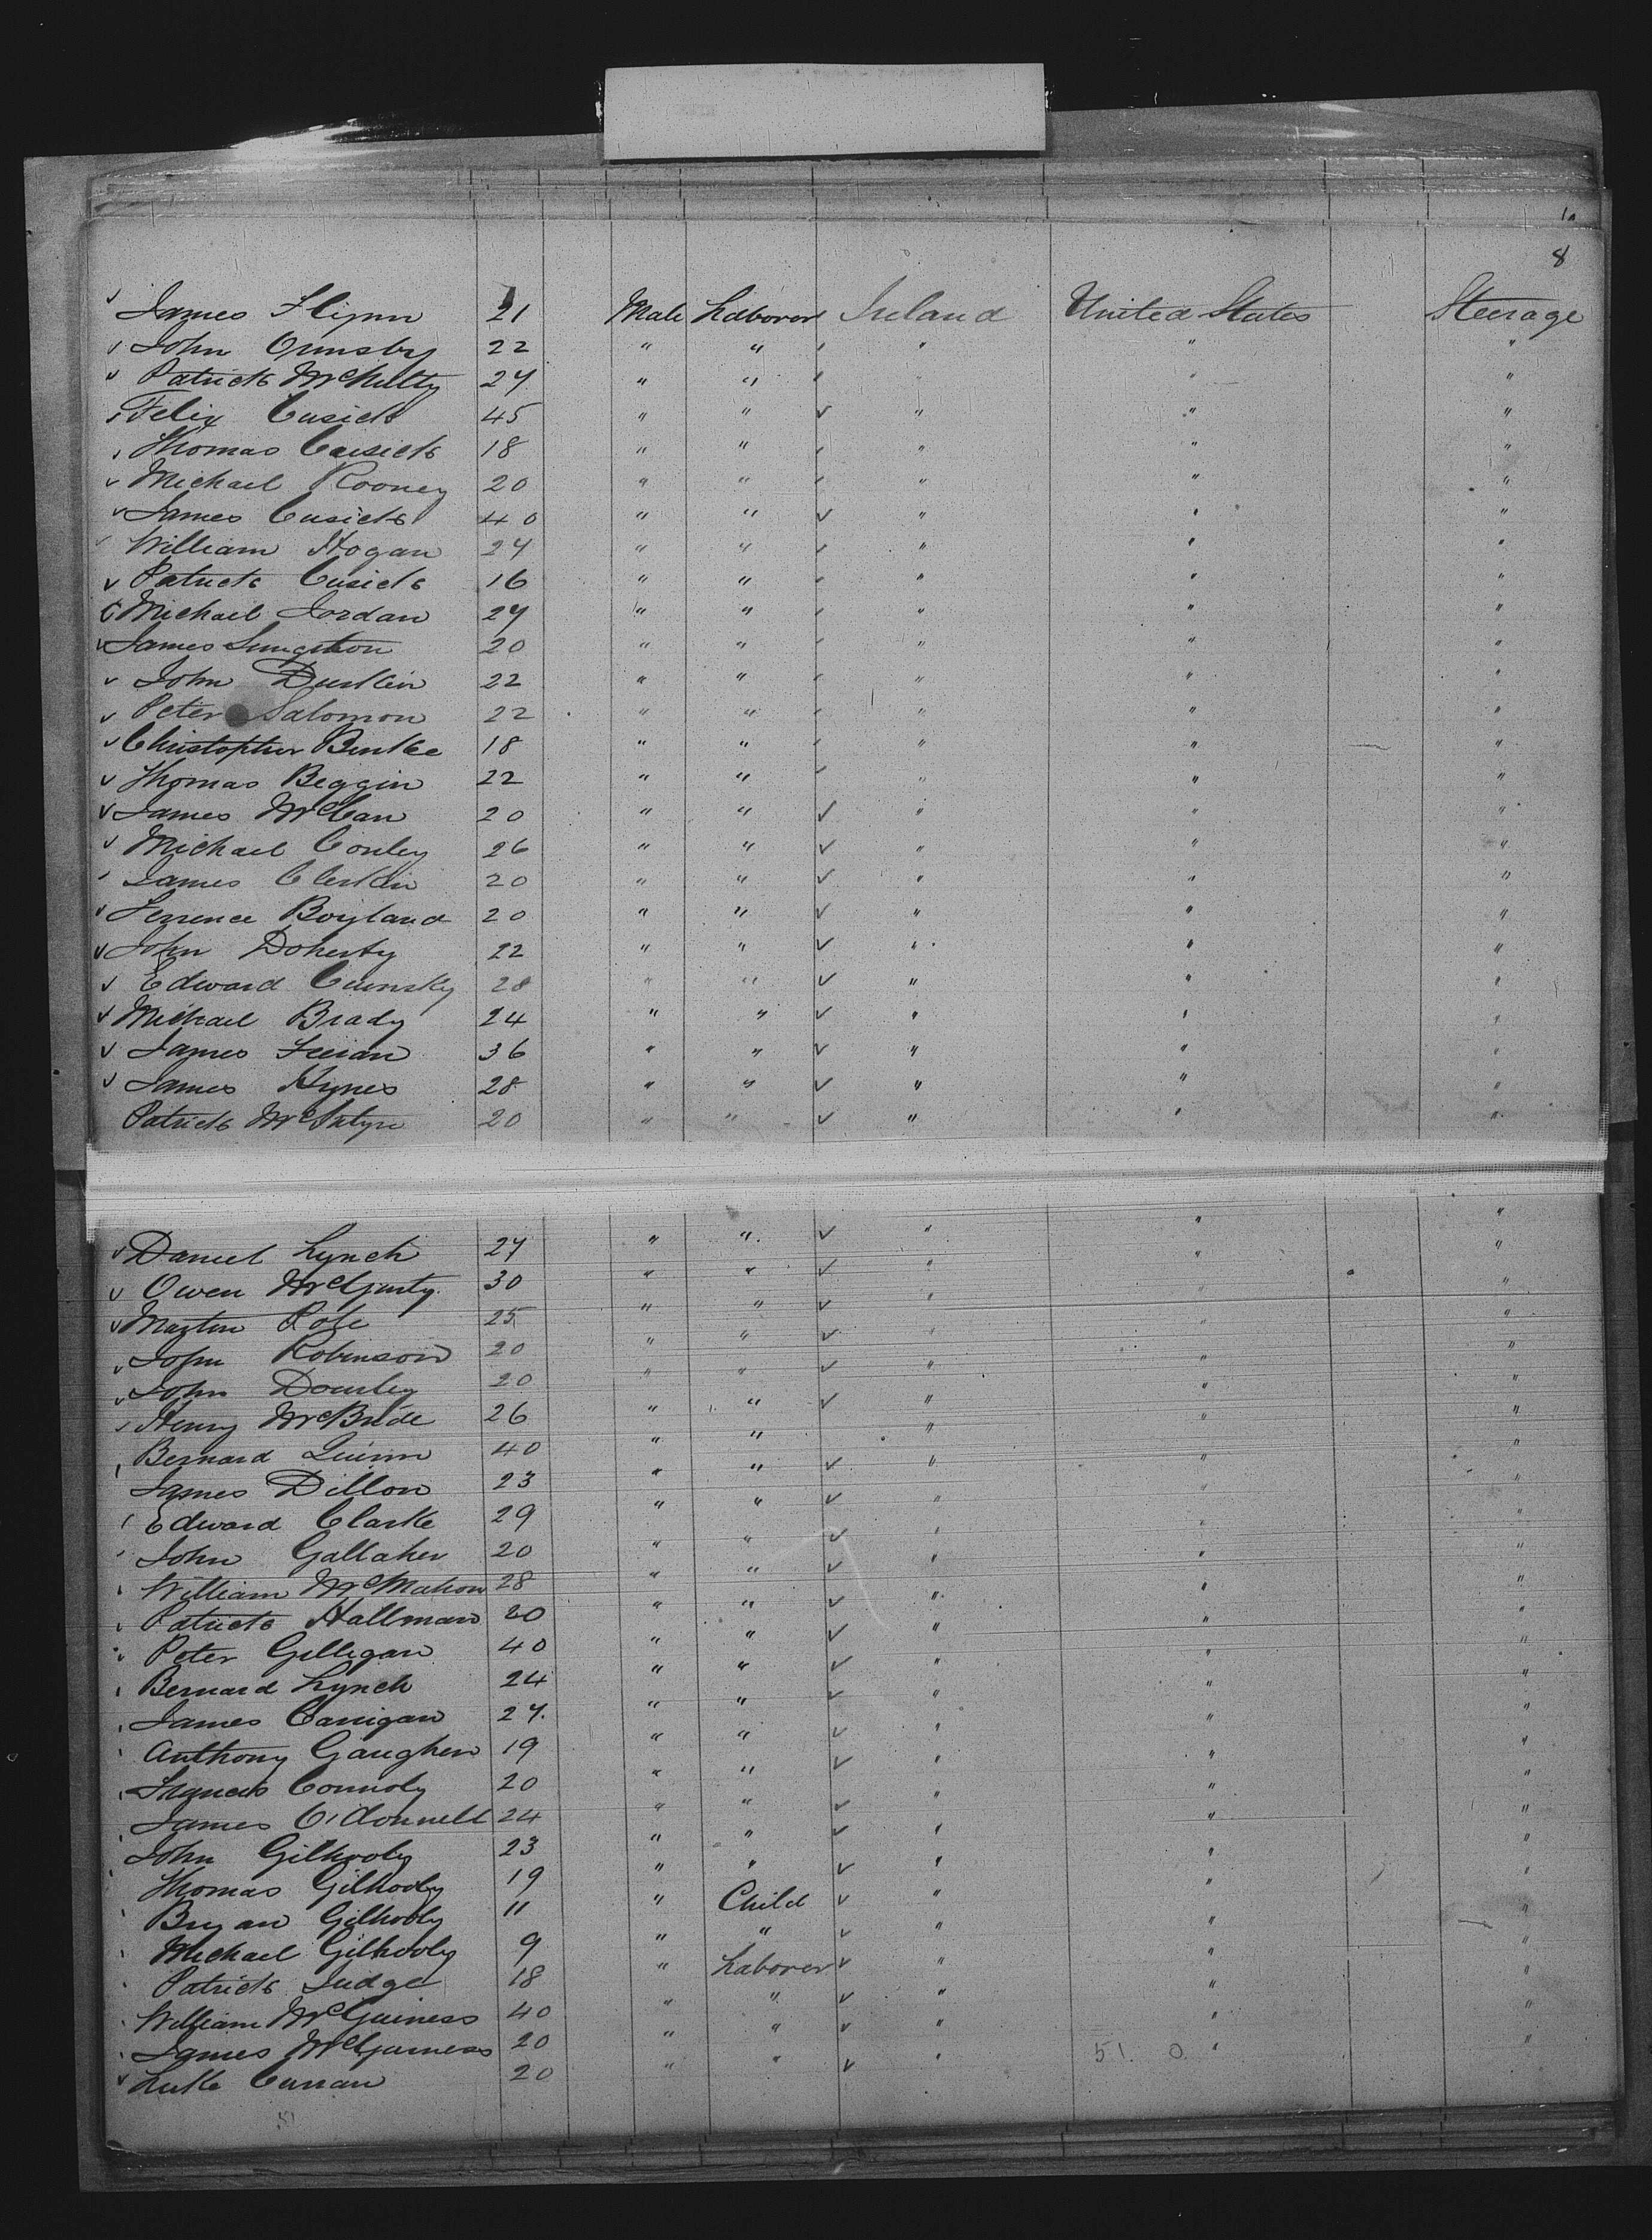 8
James Flynn 21 Male Laborer Ireland United States Steerage
John Ormsby 22 " " " " "
Patrick McNulty 24 " " " "
Felix Cusick 45 " " " " "
Thomas Cusick 18 " " " " "
Michael Rooney 20 " " " " "
James Cusick 40 " " " " "
William Hogan 24 " " " " "
Patrick Cusick 16 " " " " "
Michael Jordan 24 " " " " "
James 20 " " " " "
John Durkin 22 " " " " "
Peter Salomon 22 " " " " "
Christopher Burke 18 " " " " "
Thomas Beggin 22 " " " " "
James McCan 20 " " " " "
Michael Conley 26 " " " " "
James Clerkin 20 " " " " "
Terrence Boyland 20 " " " " "
John Doherty 22 " " " " "
Edward 20 " " " " "
Michael Brady 24 " " " " "
James 36 " " " " "
James Hynes 28 " " " " "
Patrick McIntyre 20 " " " " "
Daniel Lynch 24 " " " " "
Owen McGinty 30 " " " " "
Martin 25 " " " " "
John Robinson 20 " " " " "
John 20 " " " " "
Henry McBride 26 " " " " "
Bernard Quinn 40 " " " " "
James Dillon 23 " " " " "
Edward Clarke 29 " " " " "
John Gallaher 20 " " " " "
William McMahon 28 " " " " "
Patrick Hallman 20 " " " " "
Peter Gilligan 40 " " " " "
Bernard Lynch 24 " " " " "
James Carrigan 24 " " " " "
Anthony Gaughen 19 " " " " "
Francis Connoly 20 " " " " "
James O'Donnell 24 " " " " "
John Gilhooly 23 " " " " "
Thomas Gilhooly 19 " " " " "
Bryan Gilhooly 11 " Child " " "
Michael Gilhooly 9 " " " " "
Patrick Judge 18 " Laborer " " "
William McGuiness 40 " " " " "
James McGuiness 20 " " " " "
Luke Curran 20 " " " " "
51. 0